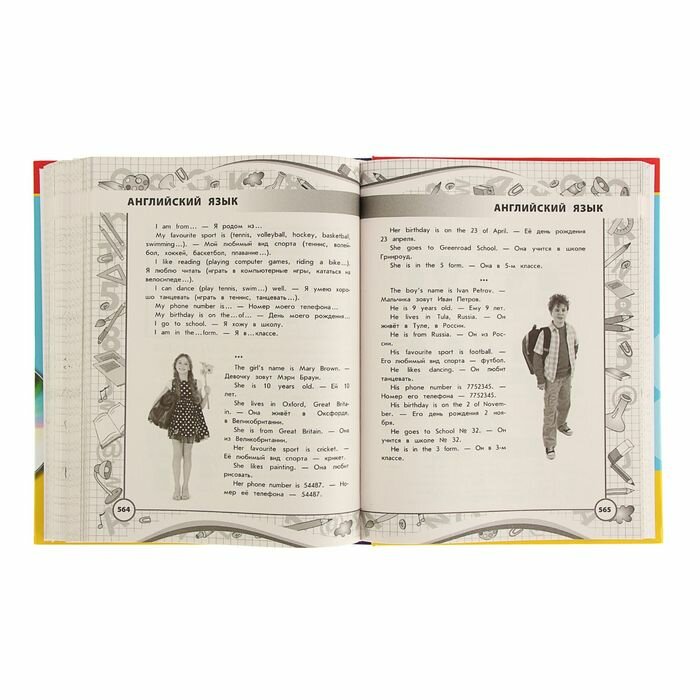 АНГЛИЙСКИЙ ЯЗЫК
I am from... — Я родом из...
My favourite sport is (tennis, volleyball, hockey, basketball,
swimming...). — Мой любимый вид спорта (теннис, волей-
бол, хоккей, баскетбол, плавание...).
I like reading (playing computer games, riding a bike...).
Я люблю читать (играть в компьютерные игры, кататься на
велосипеде...).
I can dance (play tennis, swim...) well. — Я умею хоро-
шо танцевать (играть в теннис, танцевать...).
My phone number is... — Номер моего телефона...
My birthday is on the...of... — День моего рождения...
I go to school. — Я хожу в школу.
I am in the...form. — Я в...классе.
***
The girl's name is Mary Brown. —
Девочку зовут Мэри Браун.
She is 10 years old. — Ей 10
лет.
She lives in Oxford, Great Brita-
in. — Она живёт в Оксфорде,
в Великобритании.
She is from Great Britain. — Она
из Великобритании.
Her favourite sport is cricket. —
Её любимый вид спорта — крикет.
She likes painting. — Она любит
рисовать.
Her phone number is 54487. — Но-
мер её телефона — 54487.
564
АНГЛИЙСКИЙ ЯЗЫК
Her birthday is on the 23 of April. — Её день рождения
23 апреля.
She goes to Greenroad School. — Она учится в школе
Гринроуд.
She is in the 5 form. — Она в 5-м классе.
***
The boy's name is Ivan Petrov. —
Мальчика зовут Иван Петров.
He is 9 years old. — Ему 9 лет.
He lives in Tula, Russia. — Он
живёт в Туле, в России.
He is from Russia. — Он из Рос-
сии.
His favourite sport is football. —
Его любимый вид спорта — футбол.
He likes dancing. — Он любит
танцевать.
His phone number is 7752345. —
Номер его телефона — 7752345.
His birthday is on the 2 of Novem-
ber. — Его день рождения 2 ноя-
бря.
He goes to School № 32. — Он
учится в школе № 32.
He is in the 3 form. — Он в 3-м
классе.
565